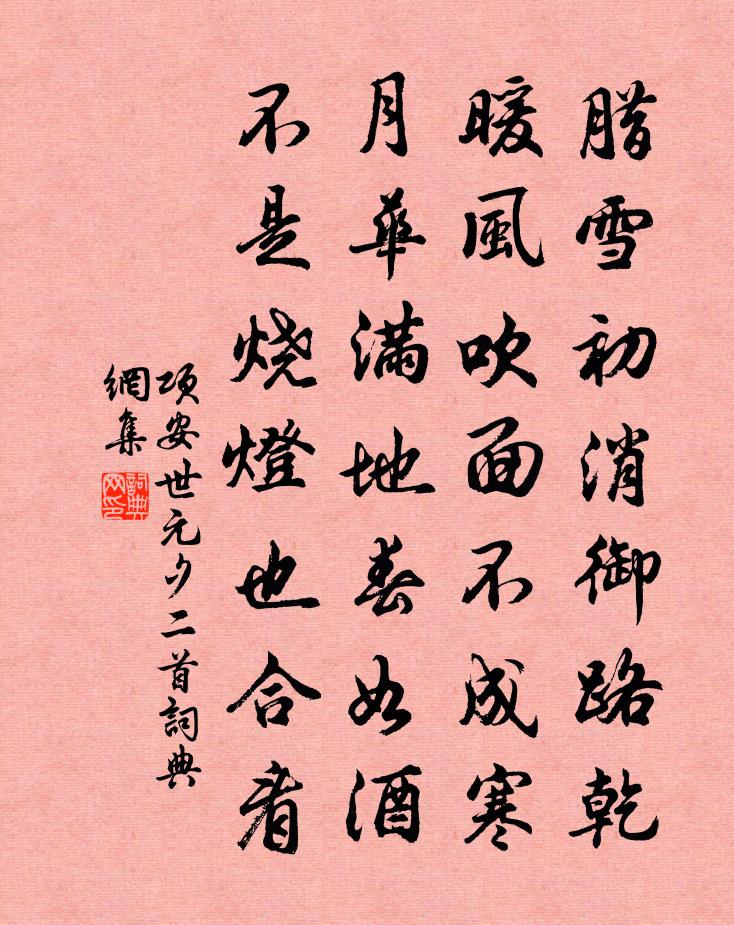 腊雪初消御路乾
暖風吹面不成寒
月華满地春如酒
不是烧燈也合看
項安世元夕二首詞典
網集
詞典
网印